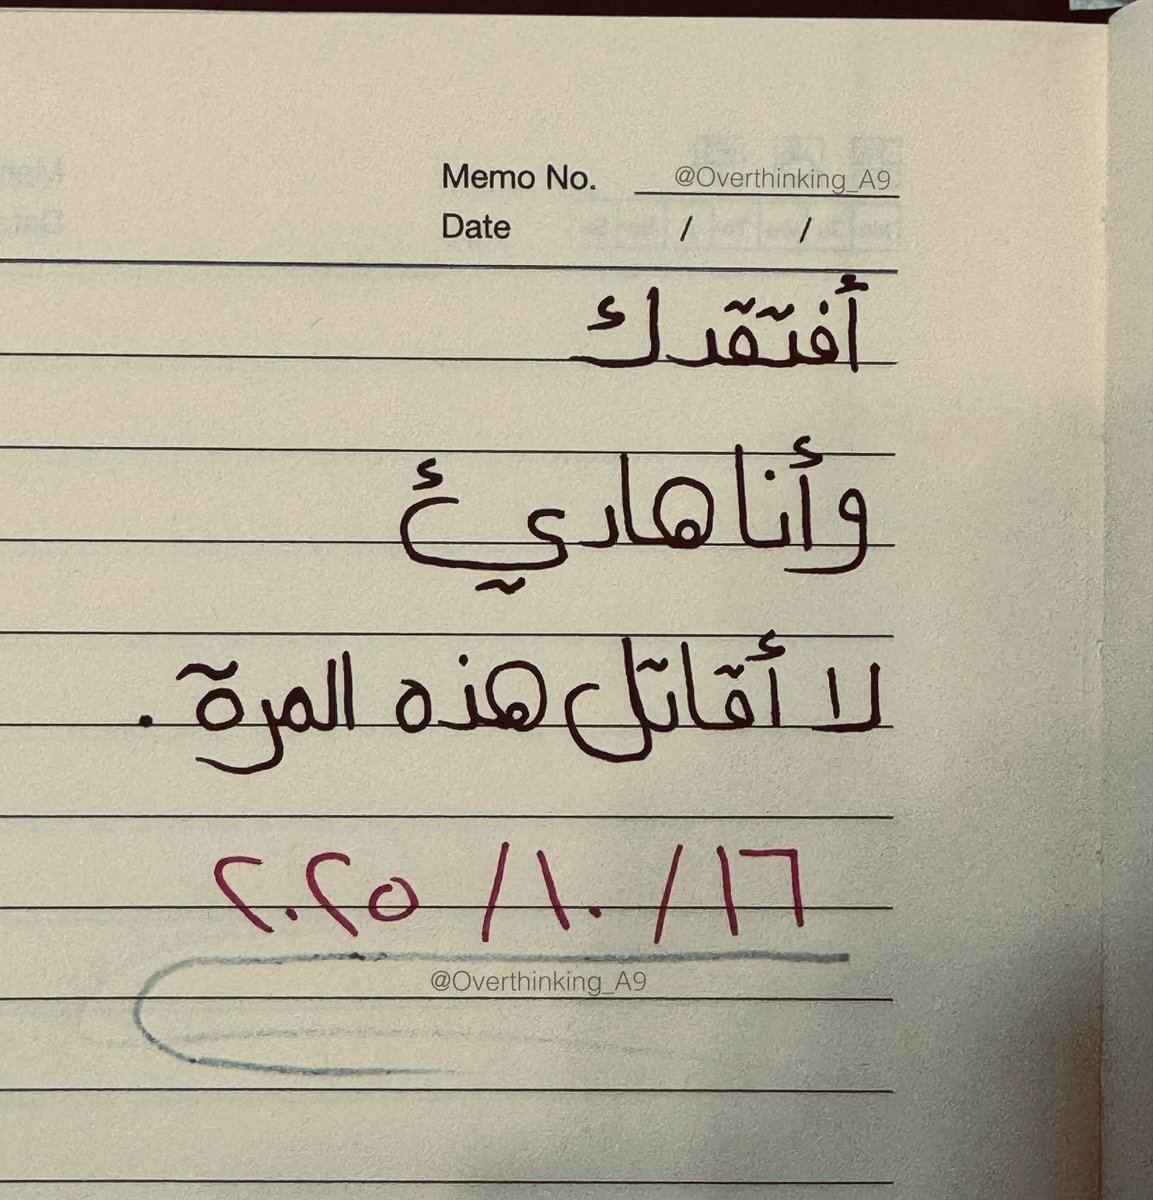 Memo No. @Overthinking_A9
Date / /
أفتقدك
وأنا هاديئ
لا أقاتل هذه المرة .
١٦ / ١٠ / ٢٠٢٥
@Overthinking_A9